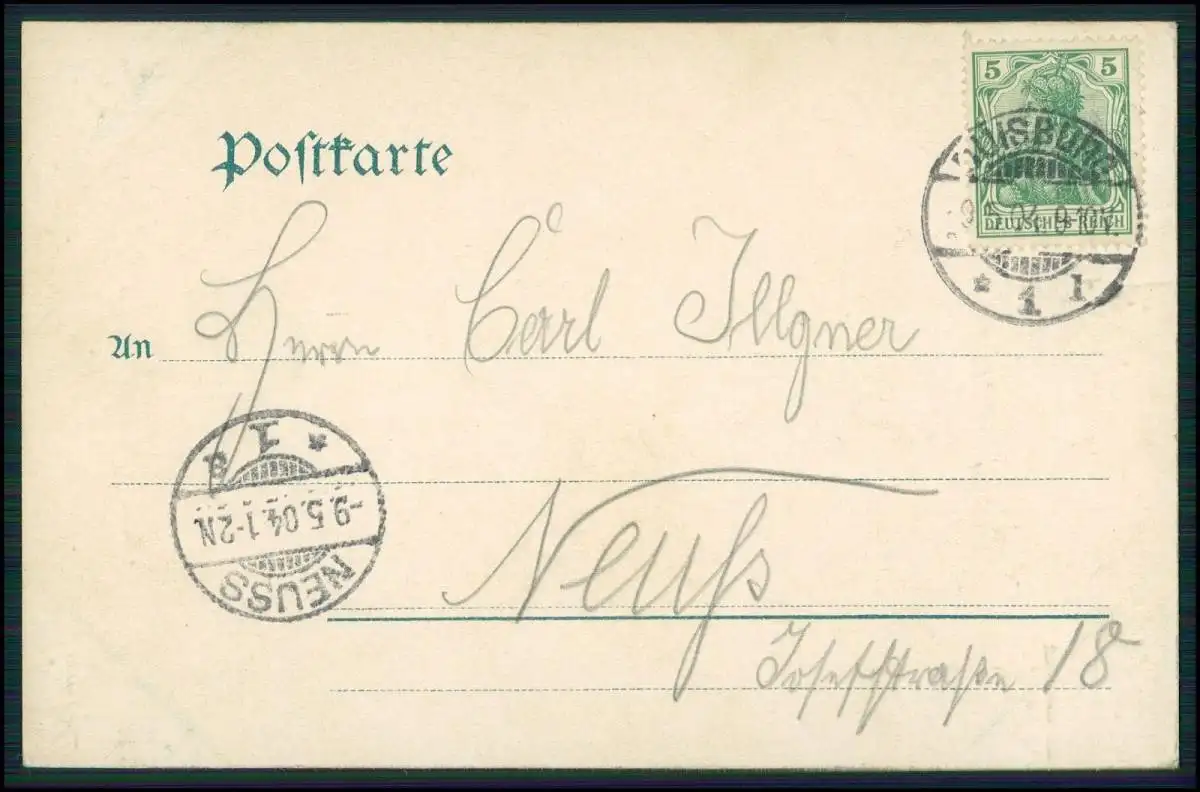 5 5
DEUTSCHES REICH
DUISBURG
9.5.04. 9-10V.
* 1 l
Poſtkarte
An Herrn Carl Illgner
Neuſs
Joſefſtraſse 18
NEUSS
-9.5.04.1-2N.
* 1 a